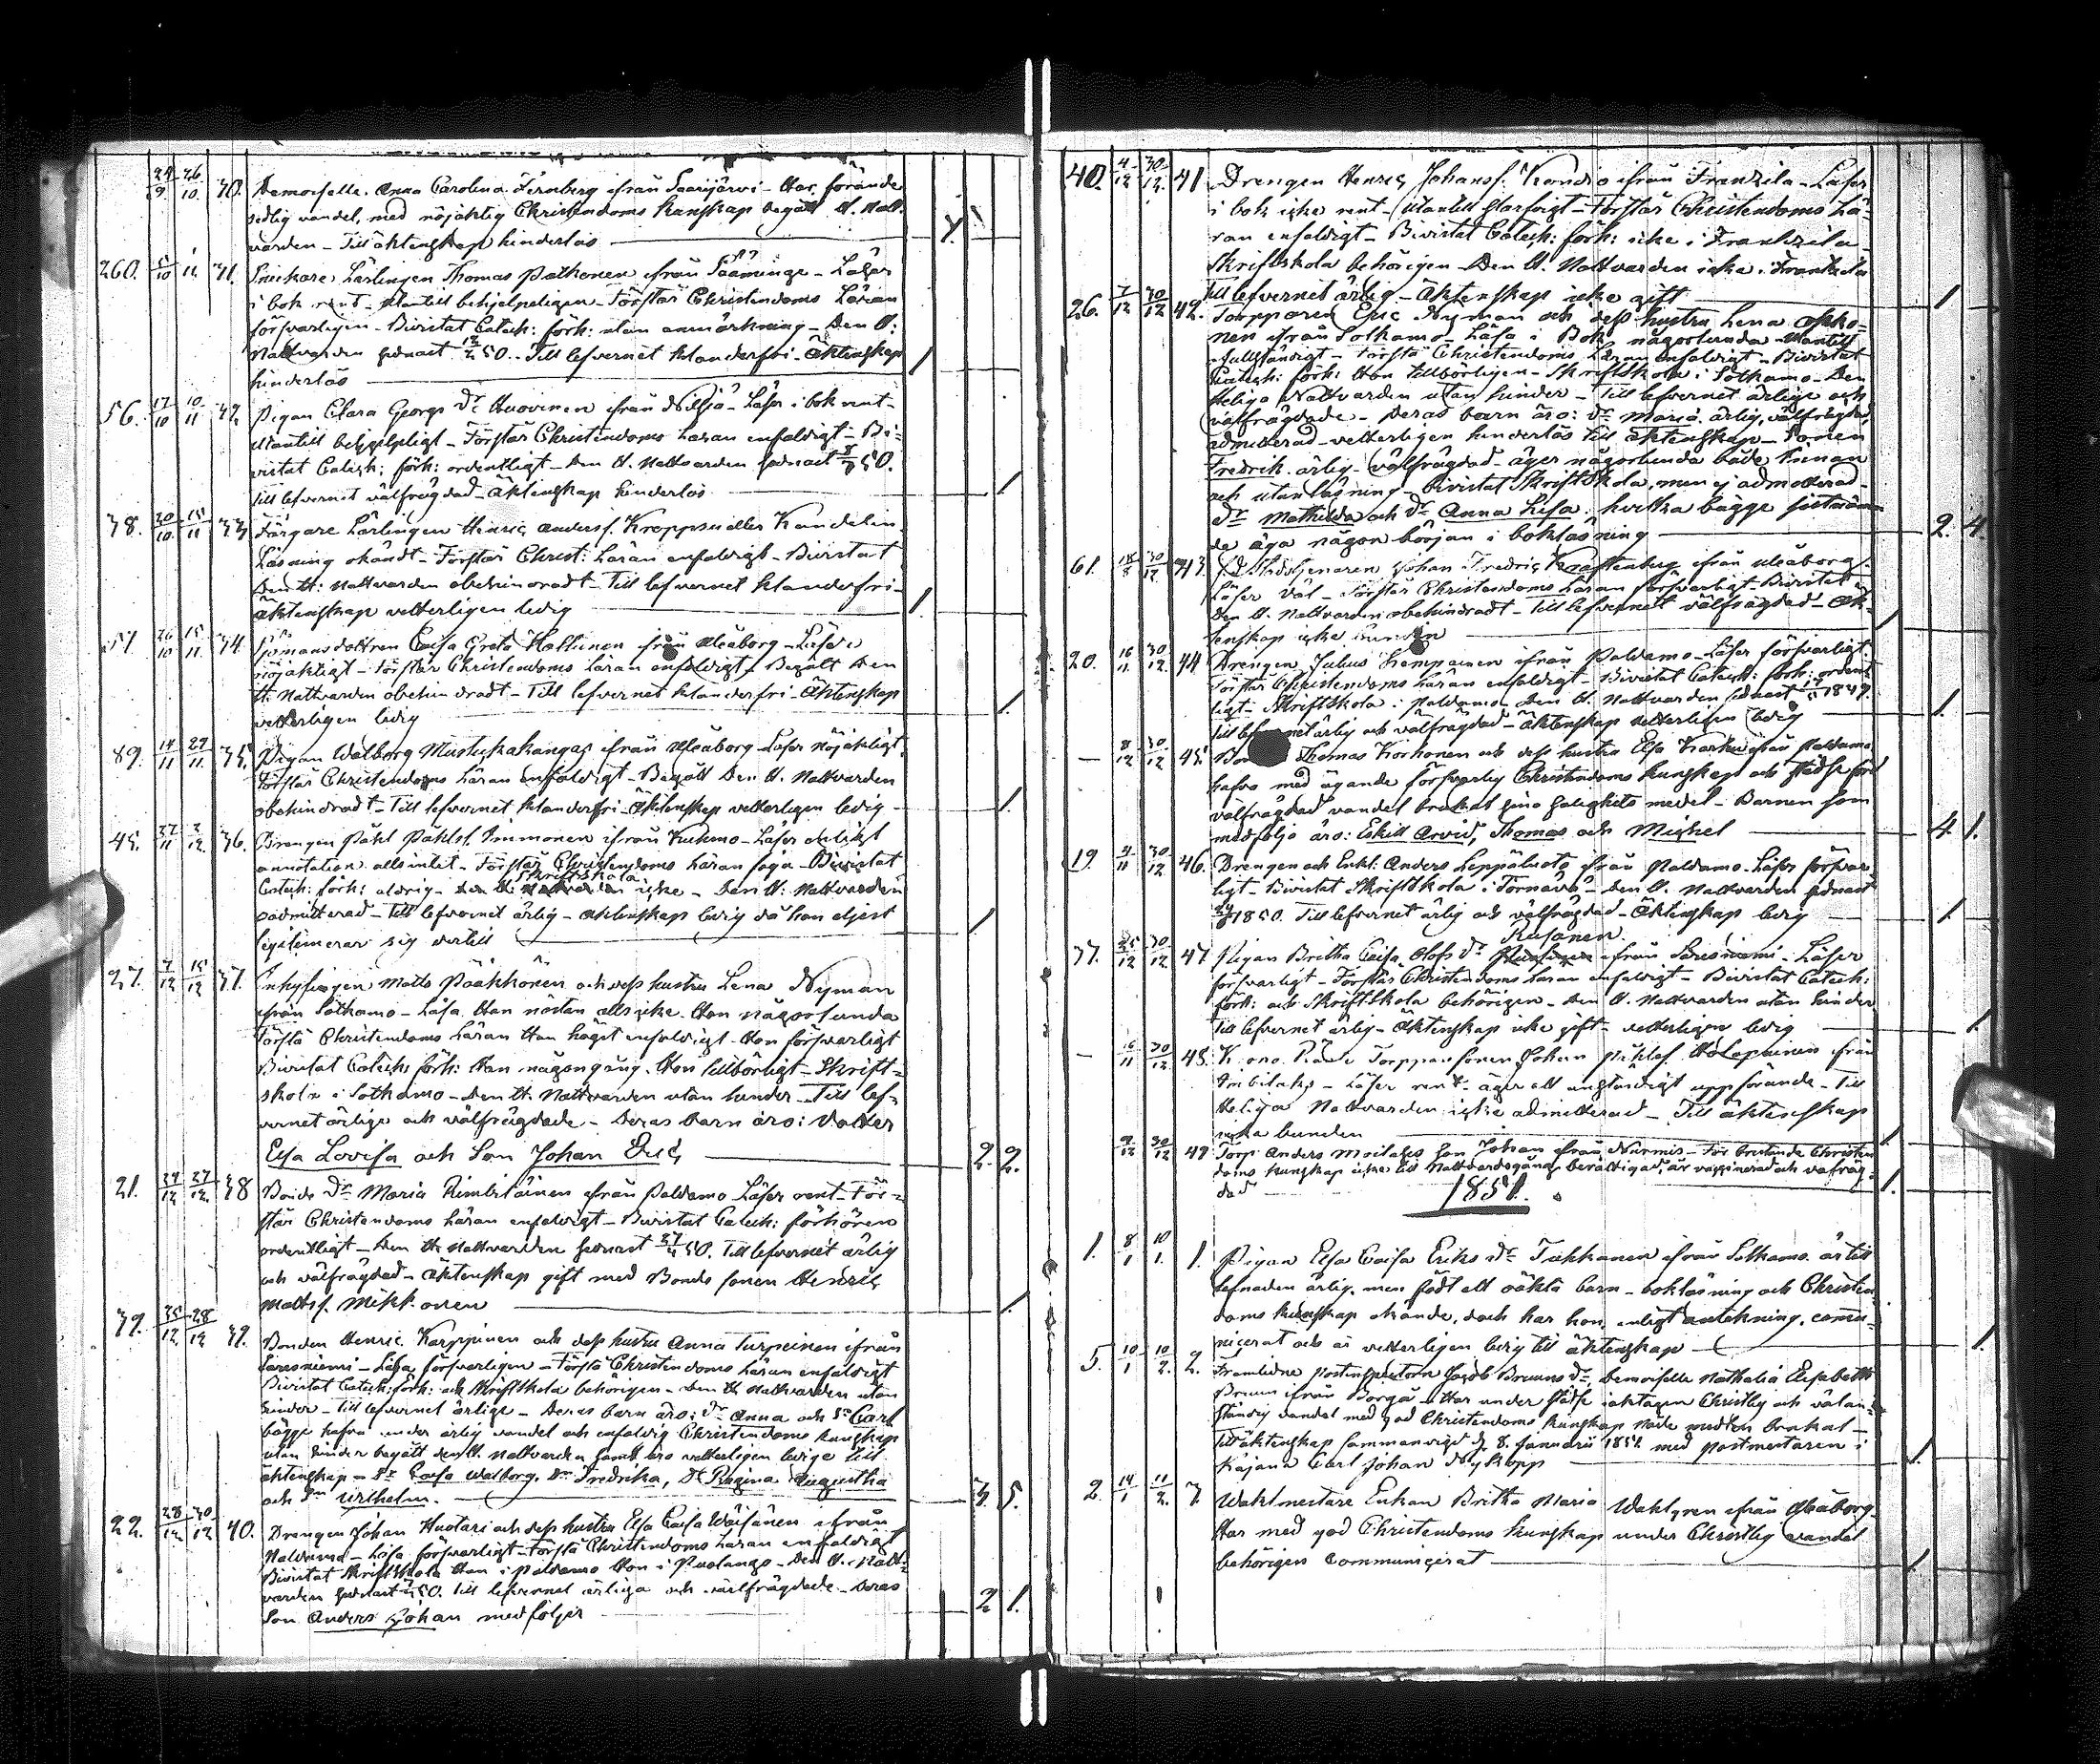 24/9 26/10 30. Demoiselle Anna Carolina Fernberg ifrån Saarijärvi - Har förande
sedlig vandel, med nöjaktig Christendoms kunskap begått H. Natt-
varden - Till äktenskap hinderlös
260. 5/10 1/11 31. Snickare Lärlingen Thomas Pathonen ifrån Sääminge - Läser
i bok rent - utantill behjelpeligen - Förstår Christendoms Läran
försvarligen - Bivistat Catech: förh: utan anmärkning - Den H:
Nattvarden sednast 50. - Till lefvernet klanderfri - Äktenskap
hinderlös 1
56. 17/10 10/11 32. Pigan Clara Georgs Dr Huovinen ifrån Nilsiä - Läser i bok rent -
Utantill behjelpligt - Förstår Christendoms Läran enfaldigt - Bi-
vistat Catech: förh: ordentligt - Den H. Nattvarden sednast 50.
Till lefvernet välfrägdad - Äktenskap hinderlös 1
38. 30/10 15/11 33 Färgare Lärlingen Henric Andersf. Kroppsu eller Kandelin
Läsning okändt - Förstår Christ: Läran enfaldigt - Bivistat
Den H: Nattvarden obehindradt - Till lefvernet klanderfri -
Äktenskap vetterligen ledig 1.
51. 26/10 15/11 34. Sjömansdottren Caisa Greta Holtinen ifrån Uleåborg - Läser
nöjaktigt - Förstår Christendoms Läran enfaldigt - Begått Den
H: Nattvarden obehindradt - Till lefvernet klanderfri - Äktenskap
vetterligen ledig 1.
89. 14/11 29/11 35. Pigan Walborg Mustukakangas ifrån Uleåborg - Läser nöjaktligt
Förstår Christendoms Läran enfaldigt - Begått Den H. Nattvarden
obehindradt - Till lefvernet klanderfri - Äktenskap vetterligen ledig 1.
45. 27/11 2/12 36. Drengen Påhl Påhlsf. Immonen ifrån Kuhmo - Läser enligt
annotation allsintet - Förstår Christendoms Läran föga - Bivistat
Skriftskola
Catech: förh: aldrig - icke - Den H. Nattvarden
oadmitterad - Till lefvernet ärlig - äktenskap ledig då han eljest
legitimerar sig dertill 1
27. 7/12 15/12 37. Inhysingen Matts Pääkkönen och dess hustru Lena Nyman
ifrån Sotkamo - Läsa Han nästan alls icke. Hon någorlunda
Förstå Christendoms Läran Han högst enfaldigt - Hon försvarligt
Bivistat Catech: förh: Han någon gång. Hon tillbörligt - Skrift-
skola i Sotkamo - Den H. Nattvarden utan hinder - Till lef-
vernet ärlige och välfrägdade - Deras barn äro: Dotter
Elsa Lovisa och Son Johan Eric 2. 2.
21. 24/12 27/12 38 Bonde Dr Maria Rimbiläinen ifrån Paldamo Läser rent - För-
står Christendoms Läran enfaldigt - Bivistat Catech: förhören
ordentligt - Den H. Nattvarden sednast 50. Till lefvernet ärlig
och välfrägdad - äktenskap gift med Bonde sonen Henric
Mattsf. Mikkonen 1.
39. 25/12 28/12 39. Bonden Henric Karppinen och dess hustru Anna Turpeinen ifrån
Säresniemi - Läsa försvarligen - Förstå Christendoms Läran enfaldigt
Bivistat Catech: förh: och Skriftskola behörigen - Den H. Nattvarden utan
hinder - Till lefvernet ärlige - Deras barn äro: Dr Anna och Sn Carl
bägge hafva under ärlig vandel och enfaldig Christendoms kunskap
utan hinder begått den H. Nattvarden samt äro vetterligen ledige till
äktenskap - Dr Caisa Walborg. Dr Fredrika, Dr Regina Augustha
och Sn Wilhelm. 3. 5.
22. 28/12 30/12 40. Drengen Johan Huotari och dess hustru Elsa Caisa Wäisänen ifrån
Paldamo - Läsa försvarligt - Förstå Christendoms Läran enfaldigt
Bivistat Skriftskola Han i Paldamo Hon i Puolango - Den H. Natt-
varden sednast 50. Till lefvernet ärliga och välfrägdade - Deras
Son Anders Johan medföljer 2 1.
40. 4/12 30/12 41 Drengen Henric Johansf. Kandio ifrån Frantzila - Läser
i bok icke rent - Utantill klarsigt - Förstår Christendoms Lä-
ran enfaldigt - Bivistat Catech: förh: icke i Frantzila -
Skriftskola behörigen - Den H. Nattvarden icke i Frantzila
Till lefvernet ärlig - Äktenskap icke gift 1
26. 7/12 30/12 42. Torpparen Eric Nyman och dess hustru Lena
nen ifrån Sotkamo - Läsa i Bok någorlunda - Utantill
fullständigt - Förstå Christendoms Läran enfaldigt - Bivistat
Catech: förh: Hon tillbörligen - Skriftskola i Sotkamo - Den
Heliga Nattvarden utan hinder - Till lefvernet ärlige och
välfrägdade - Deras barn äro: Dr Maria ärlig, välfrägdad,
admitterad - vetterligen hinderlös till äktenskap - Sonen
Fredrik ärlig - välfrägdad - äger någorlunda både innan
och utan läsning - bivistat Skriftskola, men ej admitterad -
Dr Mathilda och Dr Anna Lisa. hvilka bägge
de äga någon början i bokläsning 2. 4.
61. 30/12 43. Johan Fredric Krafftenberg ifrån Uleåborg.
Läser väl - Förstår Christendoms Läran försvarligt - Bivistat
Den H. Nattvarden obehindradt - Till lefvernet välfrägdad - Äk-
tenskap icke bunden 1
20. 16/11 30/12 44 Drengen Julius Kemppainen ifrån Paldamo - Läser försvarligt.
Förstår Christendoms Läran enfaldigt - Bivistat Catech: förh: ordent-
ligt - Skriftskola i Paldamo. Den H. Nattvarden sednast 1849.
Till lefvernet ärlig och välfrägdad - äktenskap vetterligen ledig 1.
- 8/12 30/12 45. Thomas Korhonen och dess hustru Elsa ifrån Paldamo
hafva med ägande försvarlig Christendoms kunskap och
välfrägdad vandel brukat sina salighets medel - Barnen som
medfölja äro: Eskill Arvid, Thomas och Mickel 4 1.
19. 9/11 30/12 46. Drengen och Enkl: Anders Leppäluoto ifrån Paldamo - Läser försvar-
ligt - Bivistat Skriftskola i Törnävä - Den H. Nattvarden sednast
1850. Till lefvernet ärlig och välfrägdad - Äktenskap ledig 1
Rusanen
37. 25/12 30/12 47 Pigan Britha Caisa Olofs Dr ifrån Säresniemi - Läser
försvarligt - Förstår Christendoms Läran enfaldigt - Bivistat Catech:
förh: och Skriftskola behörigen - Den H. Nattvarden utan hinder
Till lefvernet ärlig - Äktenskap icke gift - vetterligen ledig 1.
- 16/11 30/12 48. Torppare sonen Johan Påhlsf. ifrån
- Läser rent - äger ett anständigt uppförande - Till
Heliga Nattvarden icke admitterad - Till äktenskap
icke bunden 1.
9/12 30/12 49 Torp. Anders Moilanens Son Johan ifrån Nurmis - För bristande Christen-
doms kunskap icke till Nattvardsgång berättigad, är vaccinerad och välfräg-
dad 1.
1851.
1. 8/1 10/1 1. Pigan Elsa Caisa Eriks Dr Tukkanen ifrån Sotkamo är till
lefnaden ärlig, men födt ett oäkta barn - bokläsning och Christen-
doms kunskap okände, doch har hon, enligt anteckning, commu-
nicerat och är vetterligen ledig till äktenskap 1.
5. 10/1 10/2 2. Framlidne Postinspectorn Jacob Bruuns Dr Demoiselle Nathalia Elisabeth
Bruun ifrån Borgå - Har under städse iakttagen Christlig och välan-
ständig vandel med god Christendoms kunskap nåde medlen brukat -
Till äktenskap sammanvigd d. 8. Januarii 1851. med Postmästaren i
Kajana Carl Johan 1.
2. 14/1 11/2 3. Waktmästare Enkan Britha Maria Wahlgren ifrån Uleåborg
Har med god Christendoms kunskap under Christlig vandel
behörigen communicerat 1.